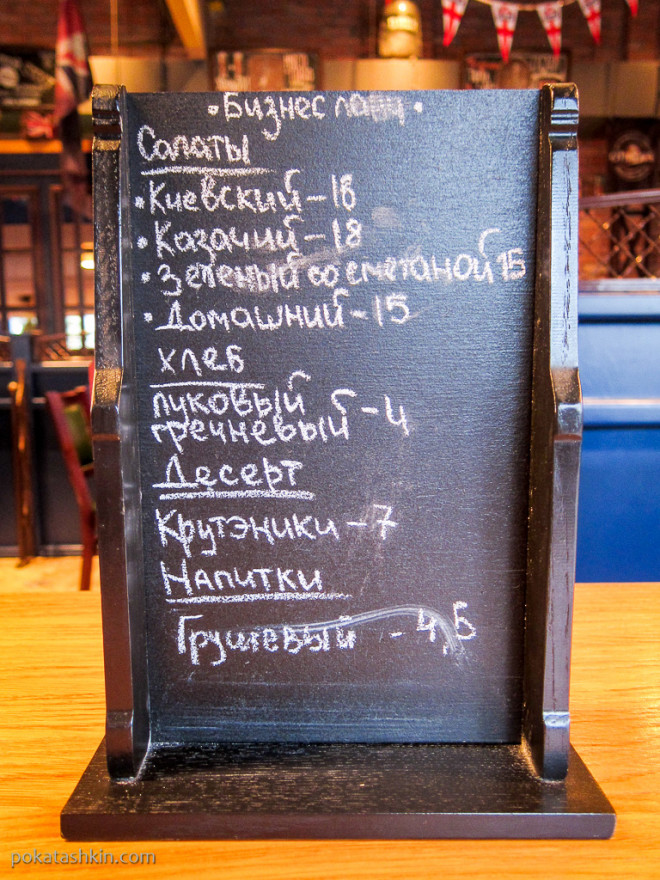 • Бизнес ланч •
Салаты
• Киевский - 18
• Казачий - 18
• Зеленый со сметаной 15
• Домашний - 15
хлеб
луковый
гречневый - 4
Десерт
Крутэники - 7
Напитки
Грушевый - 4,5
pokatashkin.com